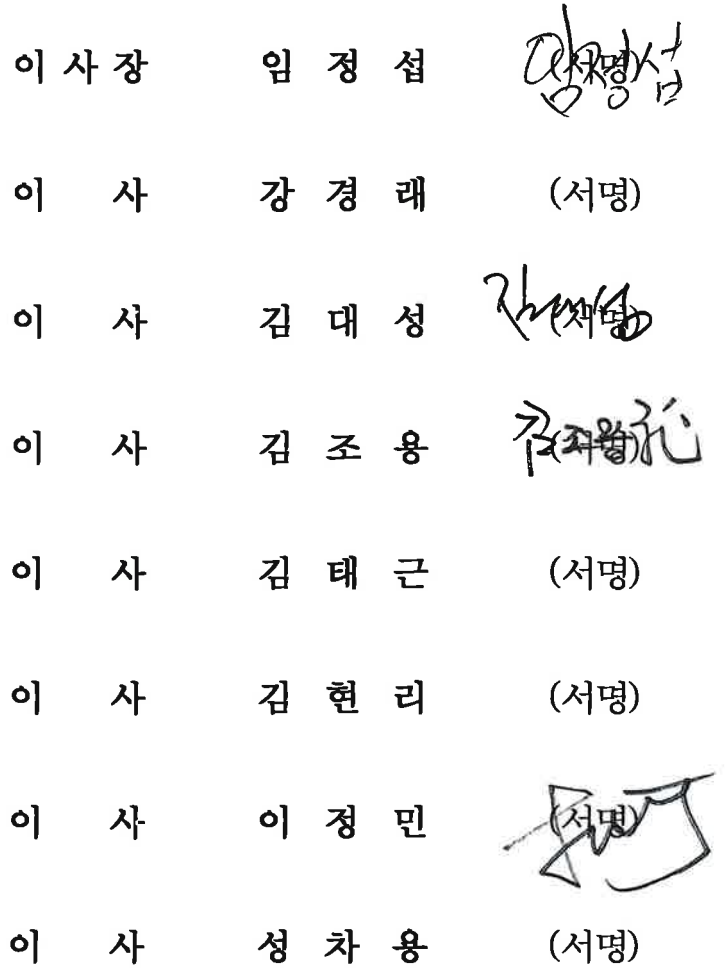 이 사 장 임 정 섭 (서명)
이 사 강 경 래 (서명)
이 사 김 대 성 (서명)
이 사 김 조 용 (서명)
이 사 김 태 근 (서명)
이 사 김 현 리 (서명)
이 사 이 정 민 (서명)
이 사 성 차 용 (서명)